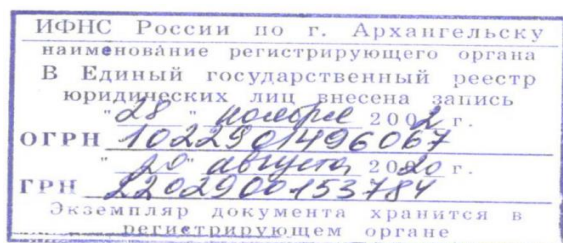 ИФНС России по г. Архангельску
наименование регистрирующего органа
В Единый государственный реестр
юридических лиц внесена запись
"28" ноября 2002 г.
ОГРН 1022901496067
"20" августа 2020 г.
ГРН 2202900153784
Экземпляр документа хранится в
регистрирующем органе